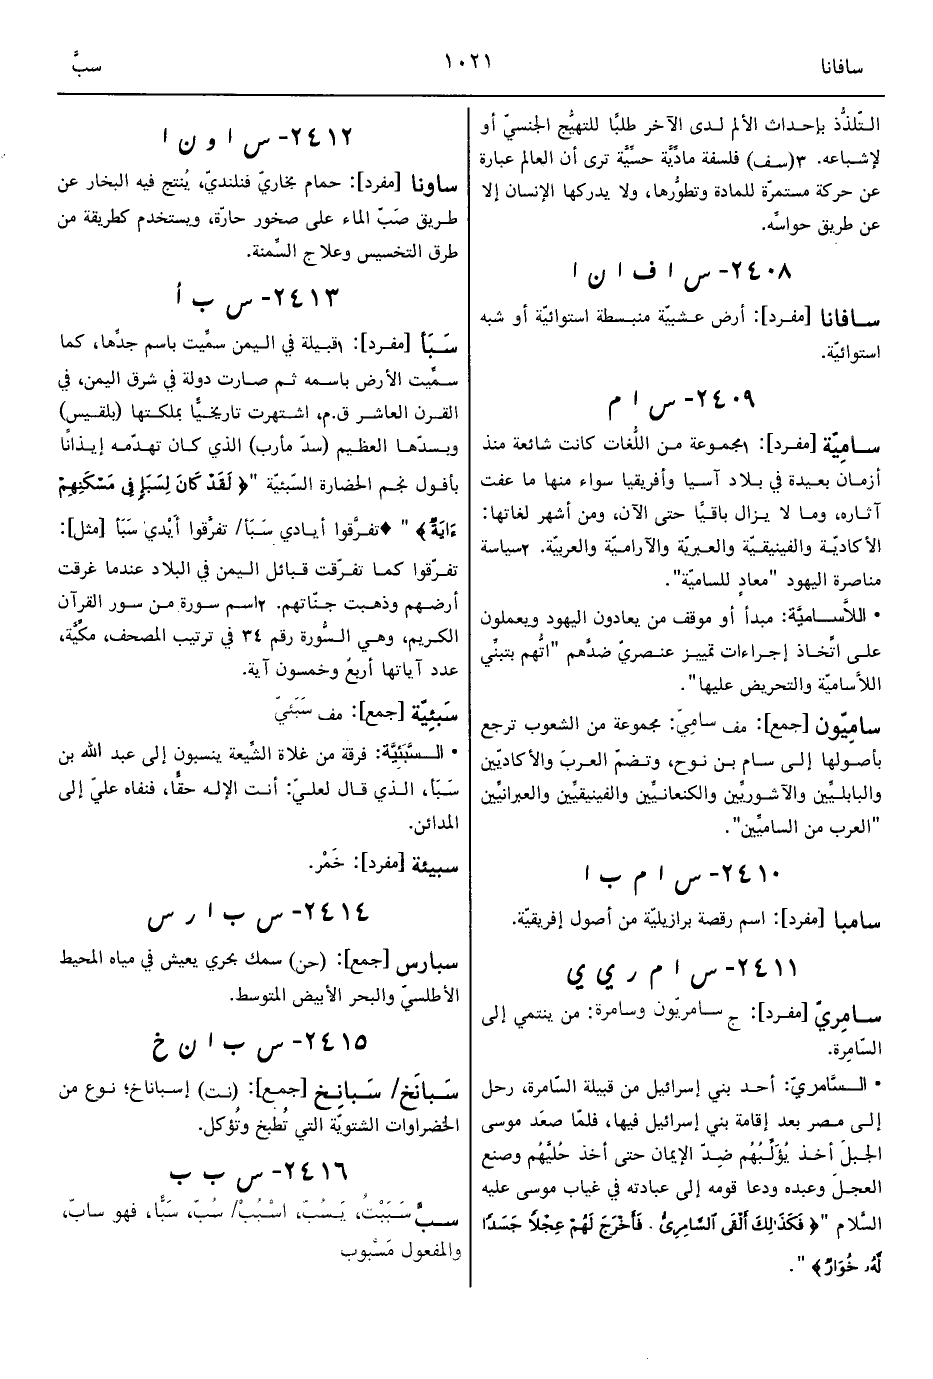 سافانا
١٠٢١
سبَّ
التّلذُّذ بإحداث الألم لدى الآخر طلبًا للتهيُّج الجنسيّ أو
لإشباعه. ٣(سف) فلسفة مادّيَّة حسِّيَّة ترى أن العالم عبارة
عن حركة مستمرّة للمادة وتطوُّرها، ولا يدركها الإنسان إلا
عن طريق حواسِّه.
٢٤٠٨- س ا ف ا ن ا
سافانا [مفرد]: أرض عشبيَّة منبسطة استوائيَّة أو شبه
استوائيّة.
٢٤٠٩- س ا م
ساميّة [مفرد]: ١مجموعة من اللُّغات كانت شائعة منذ
أزمان بعيدة في بلاد آسيا وأفريقيا سواء منها ما عفت
آثاره، وما لا يزال باقيًا حتى الآن، ومن أشهر لغاتها:
الأكاديّة والفينيقيّة والعبريّة والآراميّة والعربيّة. ٢سياسة
مناصرة اليهود "معادٍ للساميّة".
• اللاَّساميَّة: مبدأ أو موقف من يعادون اليهود ويعملون
على اتِّخاذ إجراءات تمييز عنصريّ ضدَّهم "اتُّهم بتبنِّي
اللاَّساميّة والتحريض عليها".
ساميّون [جمع]: مف ساميّ: مجموعة من الشعوب ترجع
بأصولها إلى سام بن نوح، وتضمّ العربَ والأكاديّين
والبابليِّين والآشوريِّين والكنعانيِّين والفينيقيِّين والعبرانيِّين
"العرب من الساميِّين".
٢٤١٠- س ا م ب ا
سامبا [مفرد]: اسم رقصة برازيليّة من أصول إفريقيّة.
٢٤١١- س ا م ر ي ي
سامِريّ [مفرد]: ج سامريّون وسامرة: من ينتمي إلى
السّامِرة.
• السَّامريّ: أحد بني إسرائيل من قبيلة السّامرة، رحل
إلى مصر بعد إقامة بني إسرائيل فيها، فلمّا صعَد موسى
الجبلَ أخذ يُؤَلِّبُهُم ضِدّ الإيمان حتى أخذ حُليَّهُم وصنع
العجلَ وعبده ودعا قومه إلى عبادته في غياب موسى عليه
السَّلام "﴿ فَكَذَٰلِكَ أَلْقَى السَّامِرِيُّ . فَأَخْرَجَ لَهُمْ عِجْلاً جَسَدًا
لَّهُۥ خُوَارٌ﴾ ".
٢٤١٢- س ا و ن ا
ساونا [مفرد]: حمام بخاريّ فنلنديّ، يُنتج فيه البخار عن
طريق صَبّ الماء على صخور حارّة، ويستخدم كطريقة من
طرق التخسيس وعلاج السِّمنة.
٢٤١٣- س ب أ
سَبَأ [مفرد]: ١قبيلة في اليمن سمِّيت باسم جدِّها، كما
سمِّيت الأرض باسمه ثم صارت دولة في شرق اليمن، في
القرن العاشر ق.م، اشتهرت تاريخيًّا بملكتها (بلقيس)
وبسدّها العظيم (سدّ مأرب) الذي كان تهدّمه إيذانًا
بأفول نجم الحضارة السَّبئيّة "﴿ لَقَدْ كَانَ لِسَبَإٍ فِى مَسْكَنِهِمْ
ءَايَةٌ﴾ " ♦تفرَّقوا أيادي سَبَأ/ تفرَّقوا أَيْدي سَبَأ [مثل]:
تفرّقوا كما تفرّقت قبائل اليمن في البلاد عندما غرقت
أرضهم وذهبت جنّاتهم. ٢اسم سورة من سور القرآن
الكريم، وهي السُّورة رقم ٣٤ في ترتيب المصحف، مكّيَّة،
عدد آياتها أربعٌ وخمسون آية.
سَبئِيّة [جمع]: مف سَبَئيّ
• السَّبَئيَّة: فرقة من غلاة الشِّيعة ينسبون إلى عبد الله بن
سَبَأ، الذي قال لعليّ: أنت الإله حقًّا، فنفاه عليّ إلى
المدائن.
سبيئة [مفرد]: خَمْر.
٢٤١٤- س ب ا ر س
سبارس [جمع]: (حن) سمك بحري يعيش في مياه المحيط
الأطلسيّ والبحر الأبيض المتوسط.
٢٤١٥- س ب ا ن خ
سَبانَخ/ سَبانِخ [جمع]: (نت) إسباناخ؛ نوع من
الخضراوات الشتويّة التي تُطبخ وتُؤكل.
٢٤١٦- س ب ب
سبَّ سَبَبْتُ، يَسُبّ، اسْبُبْ/ سُبّ، سَبًّا، فهو سابّ،
والمفعول مَسْبوب